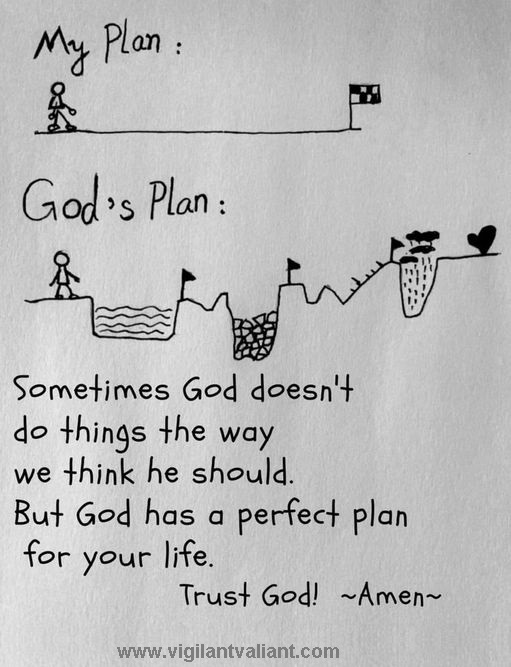 My Plan :
God's Plan :
Sometimes God doesn't
do things the way
we think he should.
But God has a perfect plan
for your life.
Trust God! ~Amen~
www.vigilantvaliant.com